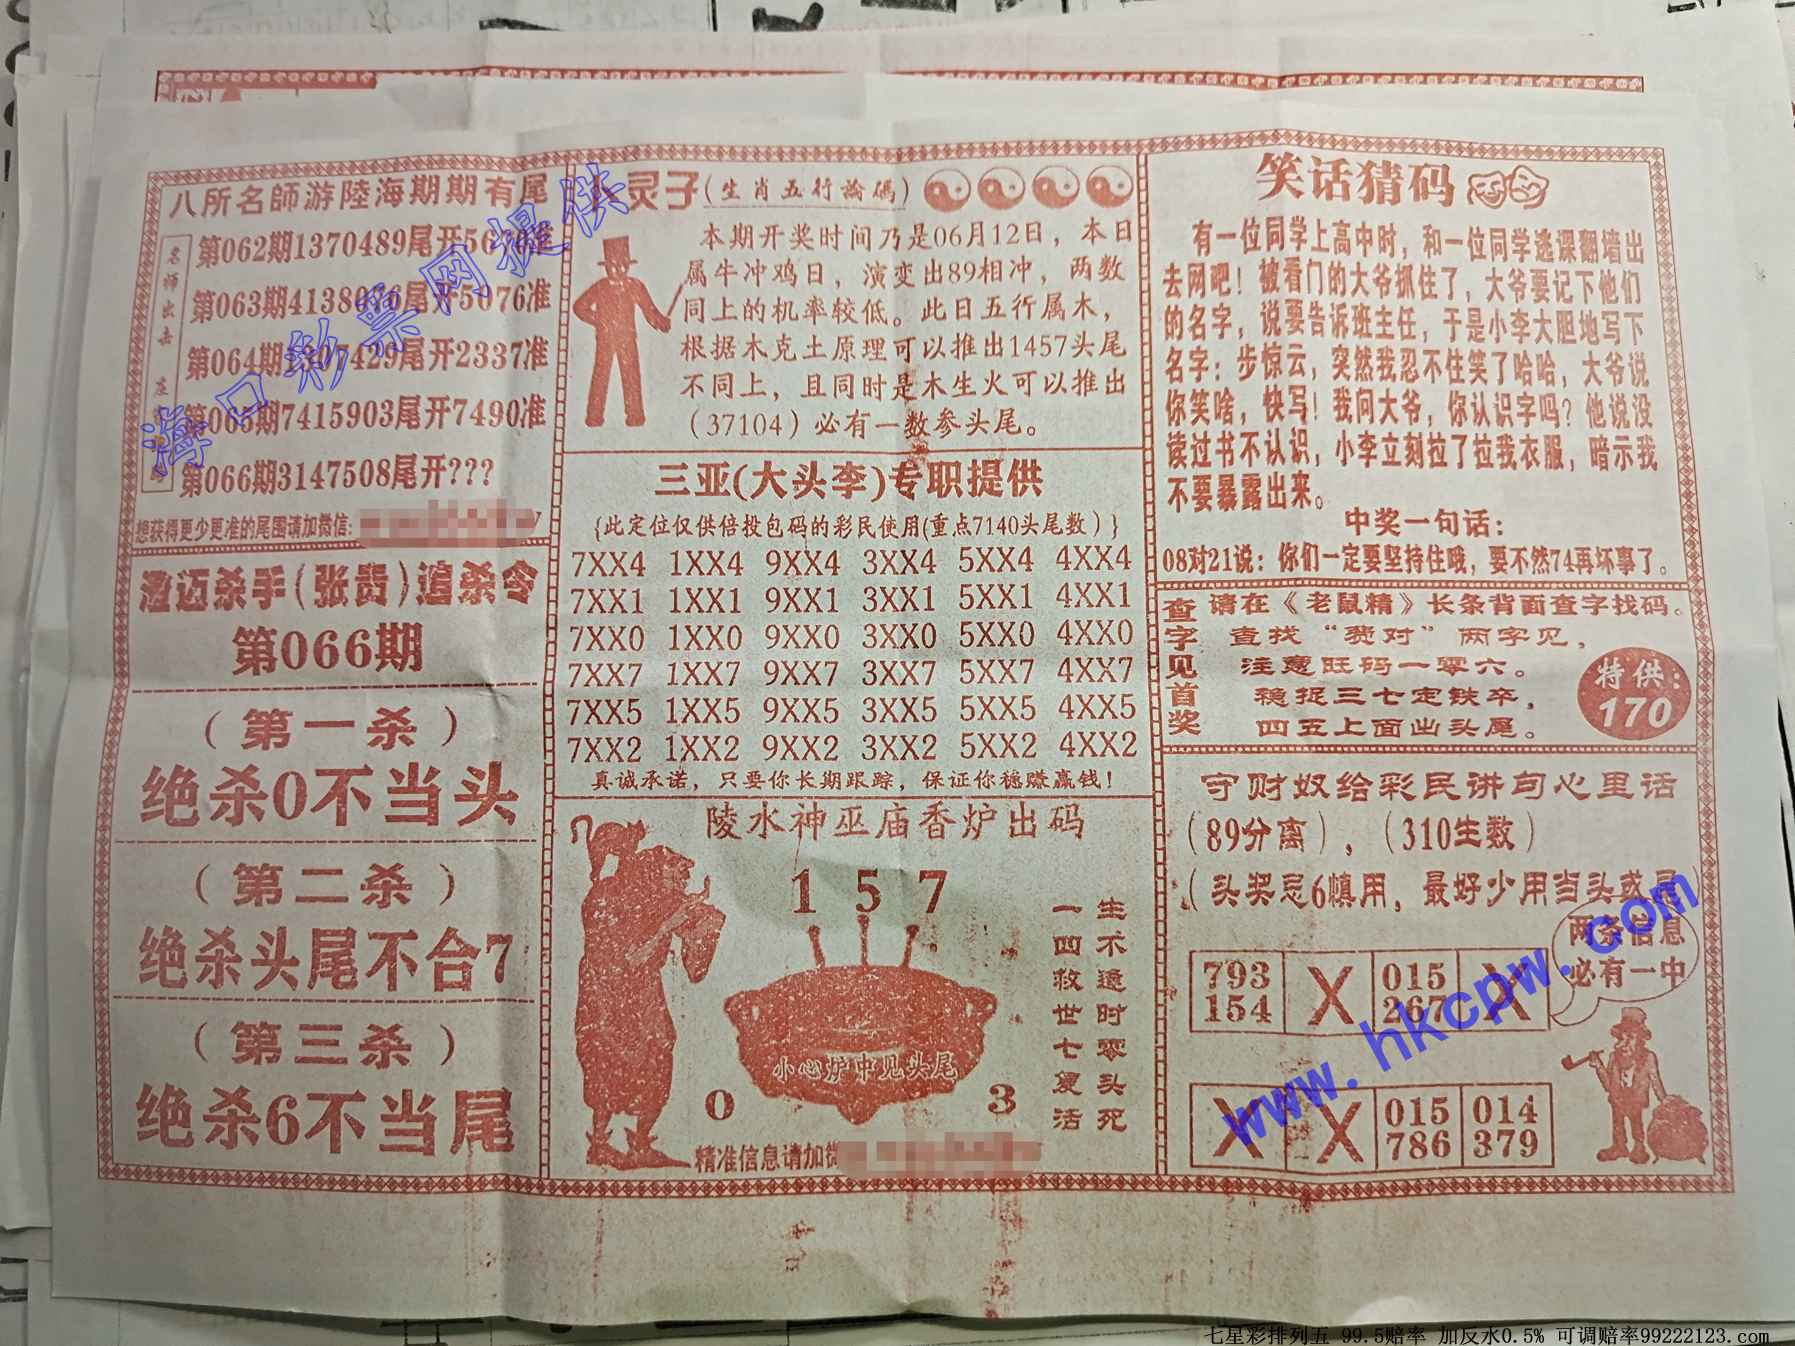 八所名師游陸海期期有尾
名师出击
第062期1370489尾开
第063期
尾开5076准
第064期
尾开2337准
第065期7415903尾开7490准
第066期3147508尾开???
想获得更少更准的尾围请加微信:
澄迈杀手(张贵)追杀令
第066期
(第一杀)
绝杀0不当头
(第二杀)
绝杀头尾不合7
(第三杀)
绝杀6不当尾
灵子(生肖五行論碼)
本期开奖时间乃是06月12日，本日
属牛冲鸡日，演变出89相冲，两数
同上的机率较低。此日五行属木，
根据木克土原理可以推出1457头尾
不同上，且同时是木生火可以推出
(37104)必有一数参头尾。
三亚(大头李)专职提供
{此定位仅供倍投包码的彩民使用(重点7140头尾数)}
7XX4 1XX4 9XX4 3XX4 5XX4 4XX4
7XX1 1XX1 9XX1 3XX1 5XX1 4XX1
7XX0 1XX0 9XX0 3XX0 5XX0 4XX0
7XX7 1XX7 9XX7 3XX7 5XX7 4XX7
7XX5 1XX5 9XX5 3XX5 5XX5 4XX5
7XX2 1XX2 9XX2 3XX2 5XX2 4XX2
真诚承诺，只要你长期跟踪，保证你稳赚赢钱！
陵水神巫庙香炉出码
1 5 7
小心炉中见头尾
0 3
生不逢时零头死
一四救世七复活
精准信息请加微
笑话猜码
有一位同学上高中时，和一位同学逃课翻墙出
去网吧！被看门的大爷抓住了，大爷要记下他们
的名字，说要告诉班主任，于是小李大胆地写下
名字：步惊云，突然我忍不住笑了哈哈，大爷说
你笑啥，快写！我问大爷，你认识字吗？他说没
读过书不认识，小李立刻拉了拉我衣服，暗示我
不要暴露出来。
中奖一句话：
08对21说：你们一定要坚持住哦，要不然74再坏事了。
查字见首奖
请在《老鼠精》长条背面查字找码。
查找“赘对”两字见，
注意旺码一零六。
稳捉三七定铁卒，
四五上面出头尾。
特供：
170
守财奴给彩民讲句心里话
(89分离)，(310生数)
(头奖忌6慎用，最好少用当头或尾)
两条信息
必有一中
793 X 015 X
154 267
X X 015 014
786 379
海口彩票网提供
www.hkcpw.com
七星彩排列五 99.5赔率 加反水0.5% 可调赔率99222123.com